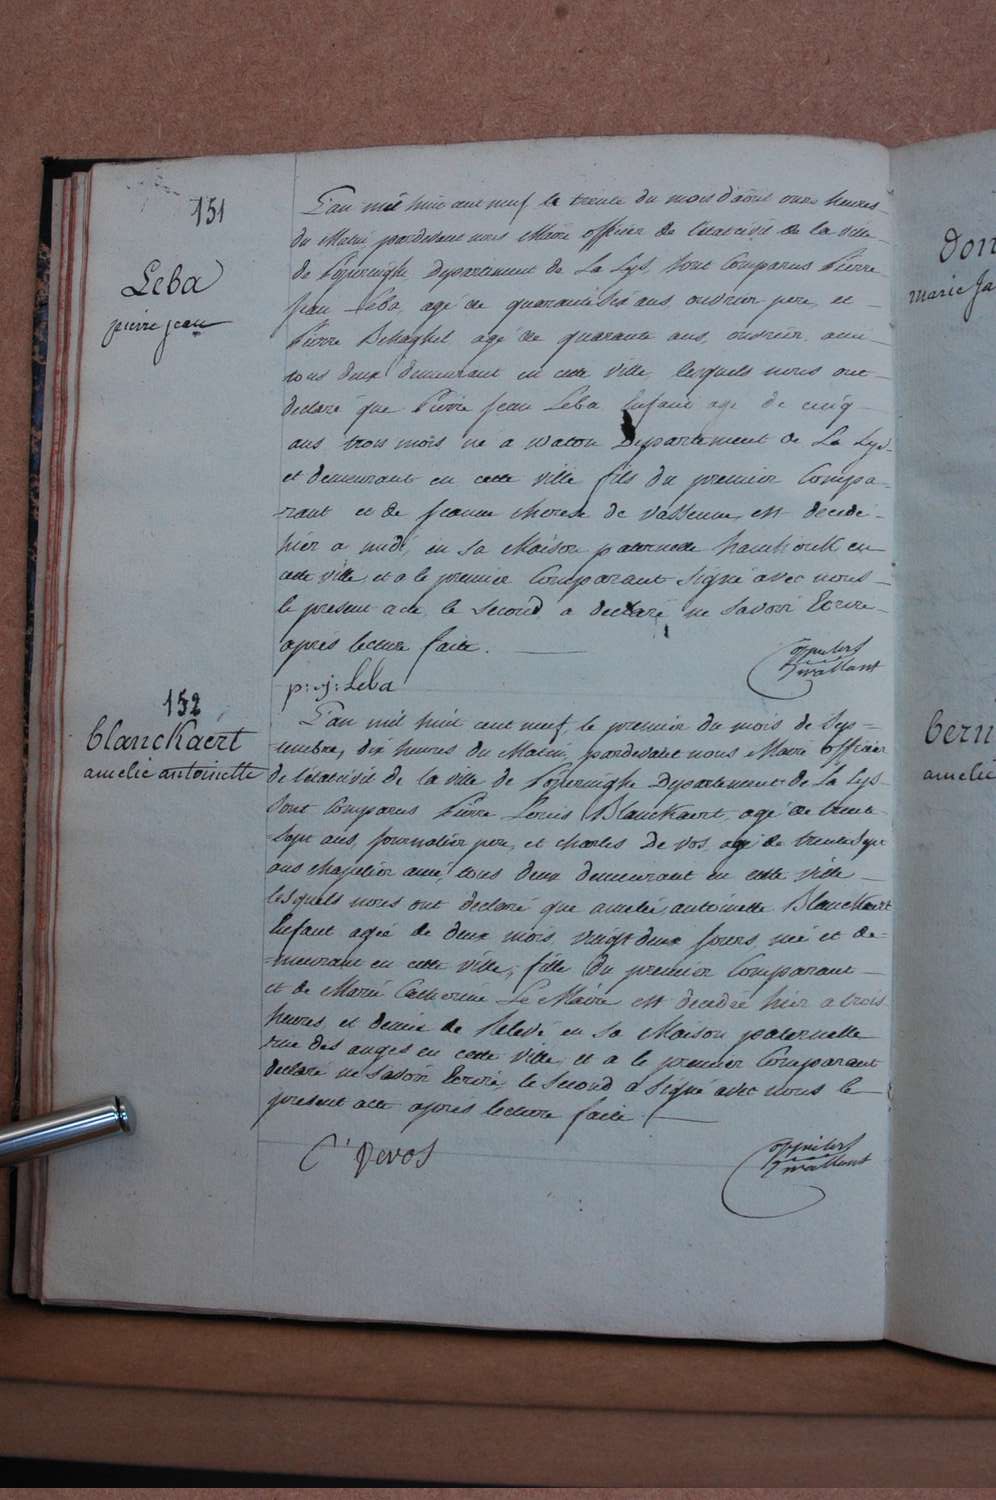 151
Leba
pierre jean
L'an mil huit cent neuf le trente du mois d'aout onze heures
du Matin pardevant nous Maire officier de l'etat civil de la ville
de Poperinghe Departement de La Lys, sont Comparus Pierre
Jean Leba, agé de quarante six ans, ouvrier pere, et
Pierre Behaghel agé de quarante ans, ouvrier, ami
tous deux demeurant en cette ville, lesquels nous ont
declaré que Pierre Jean Leba Enfant agé de cinq
ans trois mois né a Watou Departement de La Lys
et demeurant en cette ville fils du premier Compa-
rant et de Jeanne therese de Vassenne, est decedé
hier a midi, en sa Maison paternelle en
cette ville, et a le premier Comparant signé avec nous
le present acte, le second a declaré ne savoir Ecrire
après lecture faite.
p: j: Leba
152
blanckaert
amelie antoinette
L'an mil huit cent neuf, le premier du mois de Sep-
tembre, dix heures du Matin, pardevant nous Maire officier
de l'etat civil de la ville de Poperinghe Departement de La Lys
sont Comparus Pierre Louis Blanckaert, agé de trente
sept ans, Journalier pere, et charles De vos agé de trente Sept
ans chapelier ami, tous deux demeurant en cette ville
lesquels nous ont declaré que amelie antoinette Blanckaert
Enfant agée de deux mois, vingt deux Jours, née et de-
meurant en cette ville, fille du premier Comparant
et de Marie Catherine Le Maire est decedée hier a trois
heures et demie de relevé en sa Maison paternelle
rue des anges en cette ville, et a le premier Comparant
declaré ne savoir Ecrire, le second a signé avec nous le
present acte après lecture faite.
C' Devos
Don
marie Ja
bern
amelie